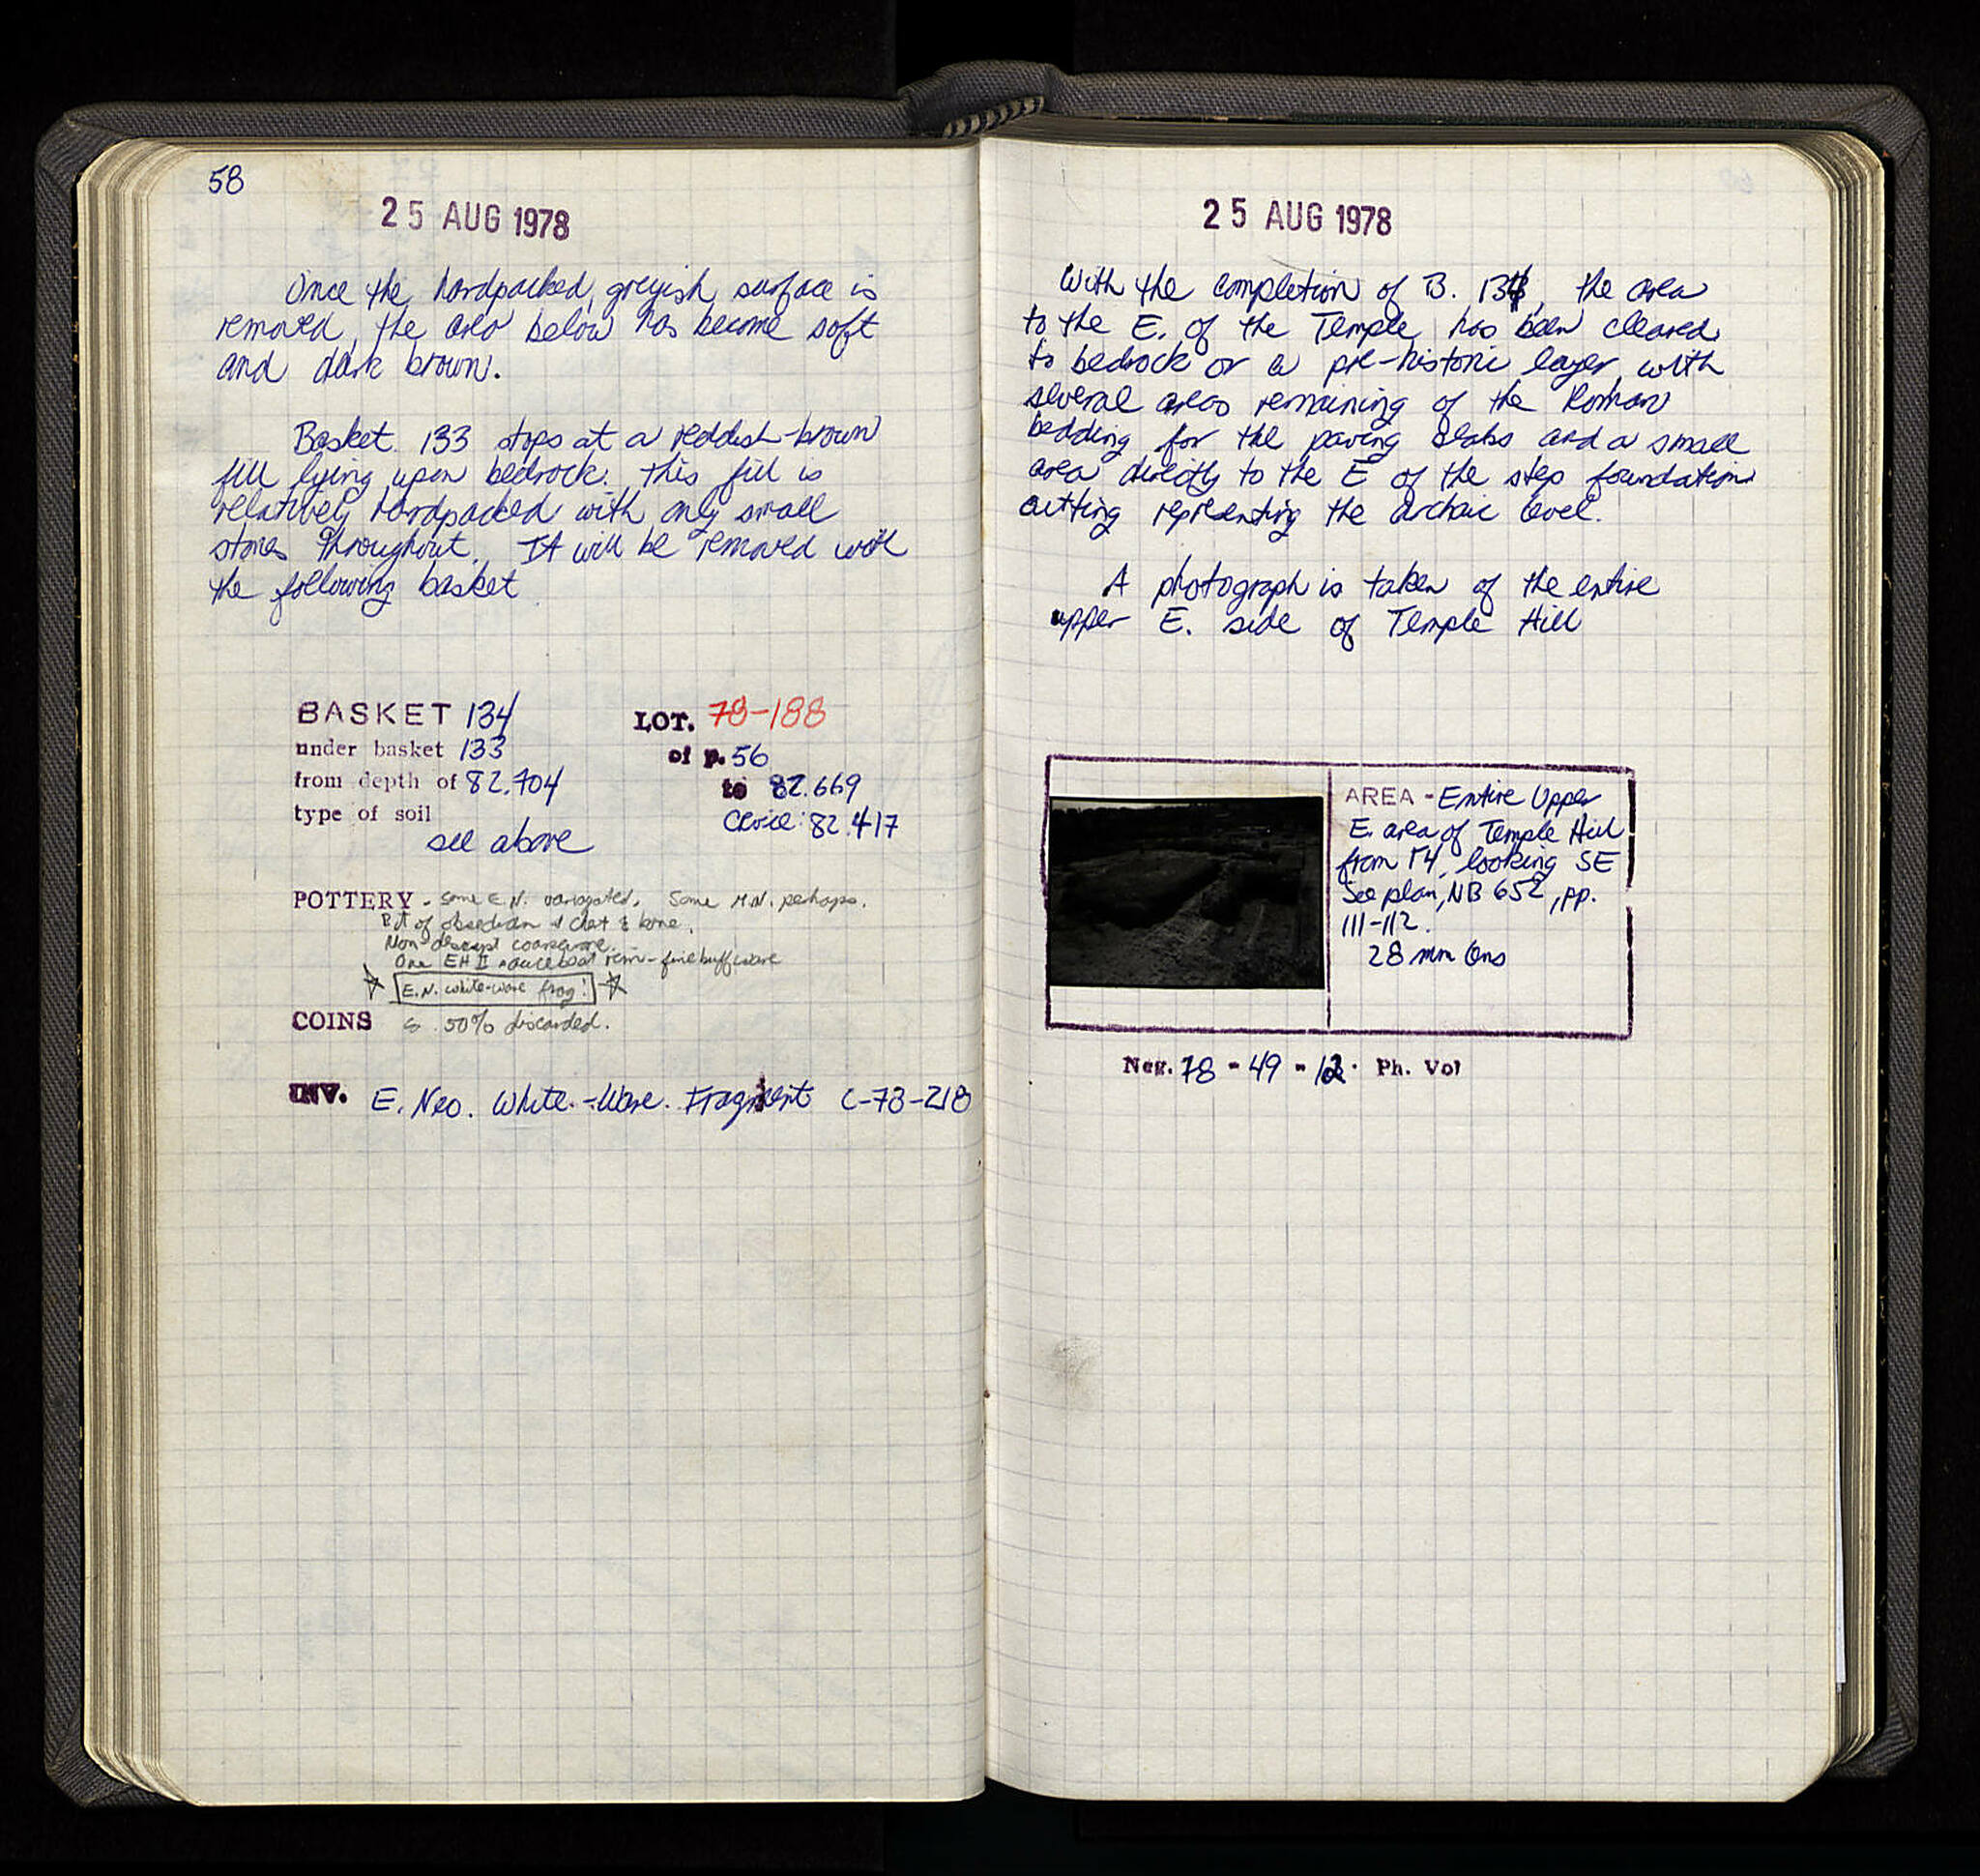 58
25 AUG 1978
Once the hardpacked, greyish surface is
removed, the area below has become soft
and dark brown.
Basket 133 stops at a reddish-brown
fill lying upon bedrock. This fill is
relatively hardpacked with only small
stones throughout. It will be removed with
the following basket
BASKET 134 LOT. 78-188
under basket 133 of p. 56
from depth of 82.704 to 82.669
type of soil
see above
82.417
POTTERY - Some E.N. variegated. Some M.N. perhaps.
Bit of obsidian & chert & bone.
Non-descript coarseware.
One EH II sauceboat rim - fine buff ware
E.N. white-ware frag!
COINS 50% discarded.
INV. E. Neo. White-Ware Fragment C-78-218
25 AUG 1978
With the completion of B. 134, the area
to the E. of the Temple has been cleared
to bedrock or a pre-historic layer with
several areas remaining of the Roman
bedding for the paving slabs and a small
area directly to the E of the step foundation
cutting representing the archaic level.
A photograph is taken of the entire
upper E. side of Temple Hill
AREA - Entire Upper
E. area of Temple Hill
from Γ4, looking SE
See plan, NB 652, pp.
111-112.
28 mm lens
Neg. 78-49-12. Ph. Vol